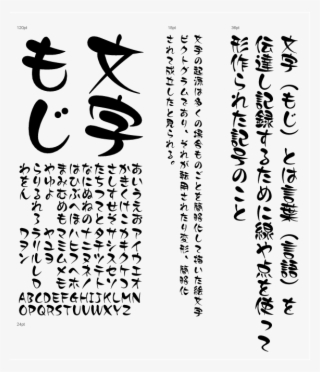 100pt
文字
もじ
あいうえお アイウエオ
かきくけこ カキクケコ
さしすせそ サシスセソ
たちつてと タチツテト
なにぬねの ナニヌネノ
はひふへほ ハヒフヘホ
まみむめも マミムメモ
やゆよ ヤユヨ
らりるれろ ラリルレロ
わをん ワヲン
ABCDEFGHIJKLMN
OPQRSTUVWXYZ
24pt
16pt
文字の起源は多くの場合ものごとを簡略化して描いた絵文字
ピクトグラムであり、それが転用されたり変形、簡略化
されて成立したと見られる。
文字（もじ）とは言葉（言語）を
伝達し記録するために線や点を使って
形作られた記号のこと